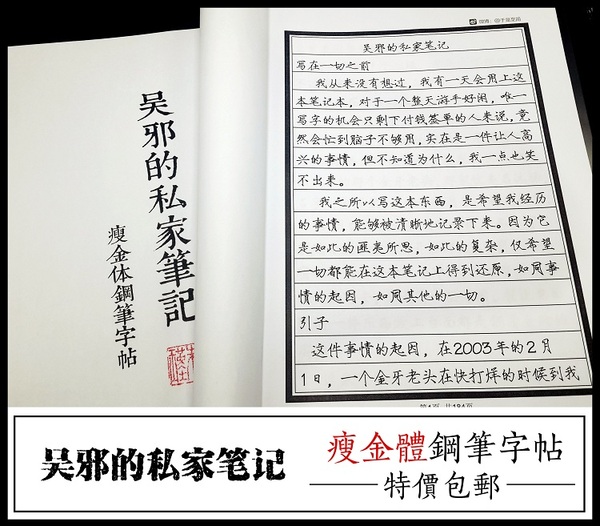 吴邪的私家筆記
瘦金体鋼筆字帖
吴邪的私家笔记
写在一切之前
我从来没有想过，我有一天会用上这
本笔记本，对于一个整天游手好闲，唯一
写字的机会只剩下付钱签单的人来说，竟
然会忙到脑子不够用，实在是一件让人高
兴的事情，但不知道为什么，我一点也笑
不出来。
我之所以写这本东西，是希望我经历
的事情，能够被清晰地记录下来。因为它
是如此的匪夷所思，如此的复杂，仅希望
一切都能在这本笔记上得到还原，如同事
情的起因，如同其他的一切。
引子
这件事情的起因，在2003年的2月
1日，一个金牙老头在快打烊的时候到我
吴邪的私家笔记
瘦金體鋼筆字帖
特價包郵